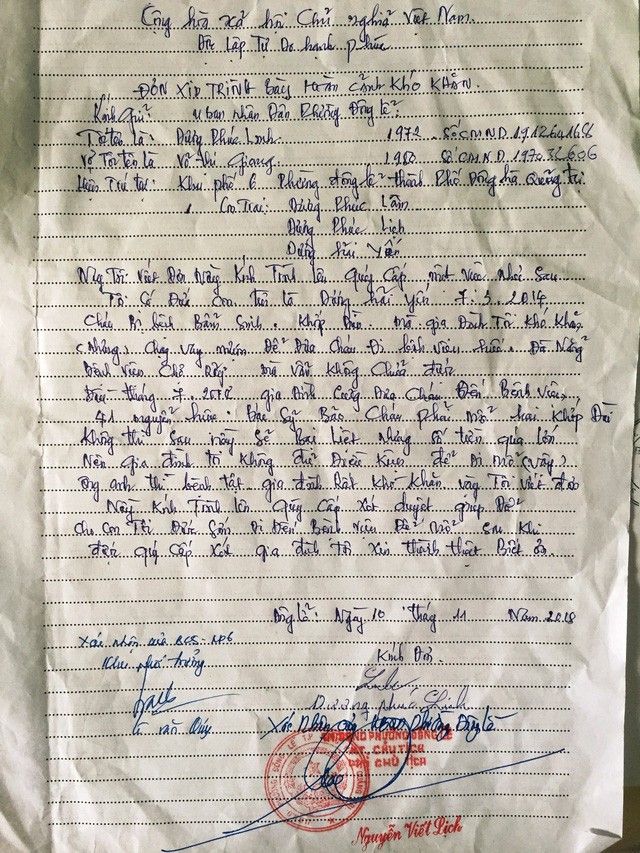 Cộng hòa xã hội Chủ nghĩa Việt Nam.
Độc Lập Tự Do hạnh phúc
ĐƠN XIN TRÌNH Bày Hoàn Cảnh KHÓ KHĂN.
Kính gửi: uban nhân Dân Phường Đông lễ.
Tôi tên là: Dương Phúc Linh. 1972
Vợ Tôi tên là Võ thị Giang 1980
Hiện Trú tại: Khu phố 6 Phường đông lễ thành Phố Đông hà Quảng trị
Con Trai: Dương Phúc Lâm
Dương Phúc Lịch
Dương hải yến
Nay Tôi Viết Đơn Này Kính Trình lên Quý Cấp một việc như sau
Tôi có Đứa con tên là Dương hải yến 7.3.2014
Cháu Bị bệnh Bẩm Sinh. Khớp mà gia Đình Tôi Khó Khăn
Chạy vay mượn Để Đưa Cháu Đi bệnh viện huế. Đà Nẵng
Bệnh viện Chợ Rẫy mà vẫn không Chữa được
tháng 7. gia Đình Cũng Đưa Cháu Đến Bệnh viện,
41 nguyễn huệ. Bác Sỹ Bảo Cháu phải mổ hai Khớp
không thì sau này Sẽ Bại Liệt nhưng số tiền quá lớn
Nên gia đình tôi không đủ Điều Kiện để Đi mổ
anh thì bệnh tật gia đình Rất khó khăn vậy Tôi viết đơn
Này Kính Trình lên Quý Cấp Xét duyệt giúp Đỡ
Cho Con Tôi Được Đi Đến Bệnh viện Để mổ sau khi
được quý Cấp Xét gia đình tôi Xin thành thật Biết ơn.
Đông lễ: Ngày 10 tháng 11 Năm 2018
Xác nhận của
Khu phố trưởng
Kính Đơn
Dương phúc Linh
Lê văn Quý
Xác Nhận của UBND Phường Đông lễ
TM. UBND PHƯỜNG ĐÔNG LỄ
KT. CHỦ TỊCH
PHÓ CHỦ TỊCH
Nguyễn Viết Lịch